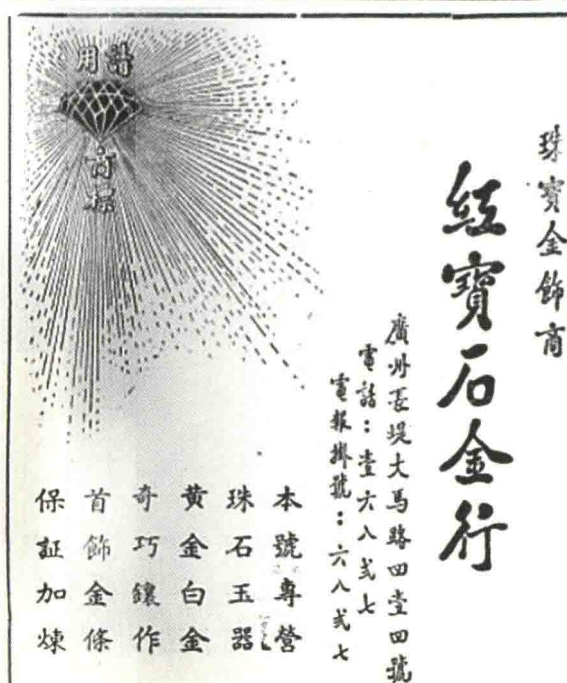 珠寶金飾商
紅寶石金行
廣州長堤大馬路四壹四號
電話：壹六八弍七
電報掛號：六八弍七
本號專營
珠石玉器
黄金白金
奇巧鑲作
首飾金條
保証加煉
請用
商标